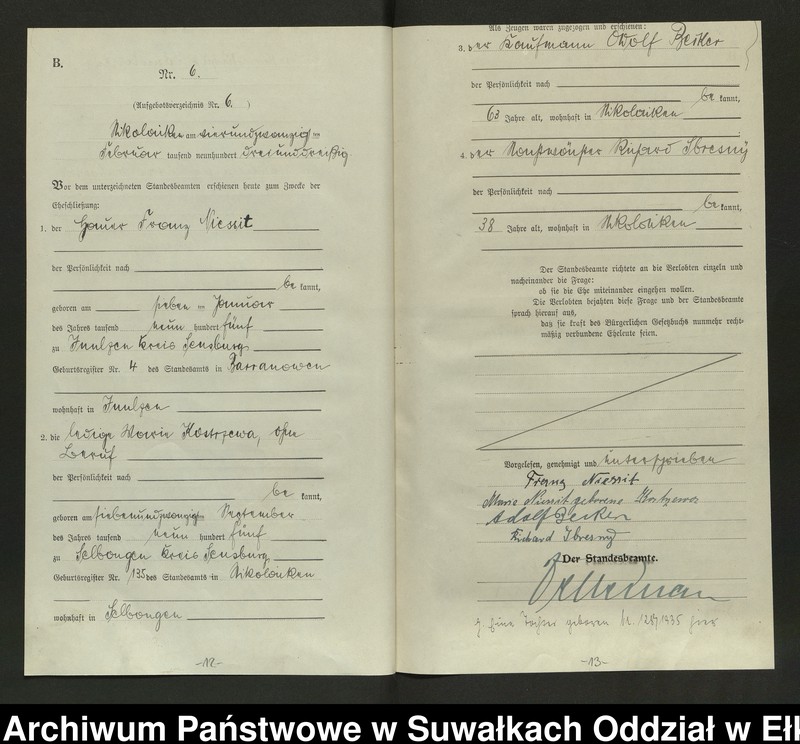 B.
Nr. 6.
(Aufgebotsverzeichnis Nr. 6. )
Nikolaiken am vierundzwanzig ten
Februar tausend neunhundert dreiunddreißig.
Vor dem unterzeichneten Standesbeamten erschienen heute zum Zwecke der
Eheschließung:
1. der Hauer Franz Niessit
der Persönlichkeit nach
be kannt,
geboren am sieben ten Januar
des Jahres tausend neun hundert fünf
zu Kreis Sensburg
Geburtsregister Nr. 4 des Standesamts in Barranowen
wohnhaft in
2. die ledige Marie Kostrzewa, ohne
Beruf
der Persönlichkeit nach
be kannt,
geboren am siebenundzwanzigsten September
des Jahres tausend neun hundert fünf
zu Selbongen Kreis Sensburg
Geburtsregister Nr. 135 des Standesamts in Nikolaiken
wohnhaft in Selbongen
-12-
Als Zeugen waren zugezogen und erschienen:
3. der Kaufmann Adolf Becker
der Persönlichkeit nach
be kannt,
63 Jahre alt, wohnhaft in Nikolaiken
4. der Richard Ibresny
der Persönlichkeit nach
be kannt,
38 Jahre alt, wohnhaft in Nikolaiken
Der Standesbeamte richtete an die Verlobten einzeln und
nacheinander die Frage:
ob sie die Ehe miteinander eingehen wollen.
Die Verlobten bejahten diese Frage und der Standesbeamte
sprach hierauf aus,
daß sie kraft des Bürgerlichen Gesetzbuchs nunmehr recht-
mäßig verbundene Eheleute seien.
Vorgelesen, genehmigt und unterschrieben
Franz Niessit
Marie Niessit geborene Kostrzewa
Adolf Becker
Richard Ibresny
Der Standesbeamte.
Eine Tochter geboren Nr. 128/1935 hier
-13-
Archiwum Państwowe w Suwałkach Oddział w Ełk